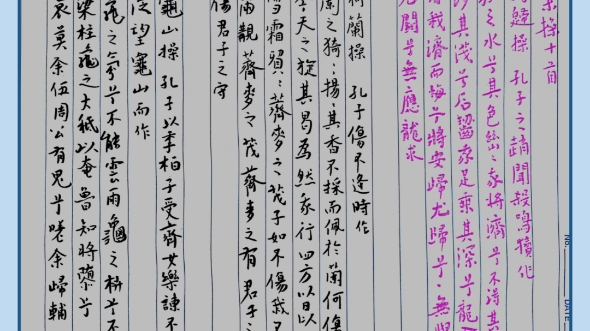 琴操十首
將歸操 孔子之趙聞殺鳴犢作
之水兮其色幽幽我將濟兮不得其
涉其淺兮石齧我足乘其深兮龍入
我濟而悔兮將安歸尤歸兮無與
石鬪兮無應龍求
猗蘭操 孔子傷不逢時作
蘭之猗猗揚揚其香不採而佩於蘭何傷
今天之旋其曷為然我行四方以日以
雪霜貿貿薺麥之茂子如不傷我不
爾覯薺麥之茂薺麥之有君子之
傷君子之守
龜山操 孔子以季桓子受齊女樂諫不
從望龜山而作
龜之氛兮不能雲雨龜之枿兮不
梁柱龜之大祗以奄魯知將隳兮
哀莫余伍周公有鬼兮嗟余歸輔
No.
DATE